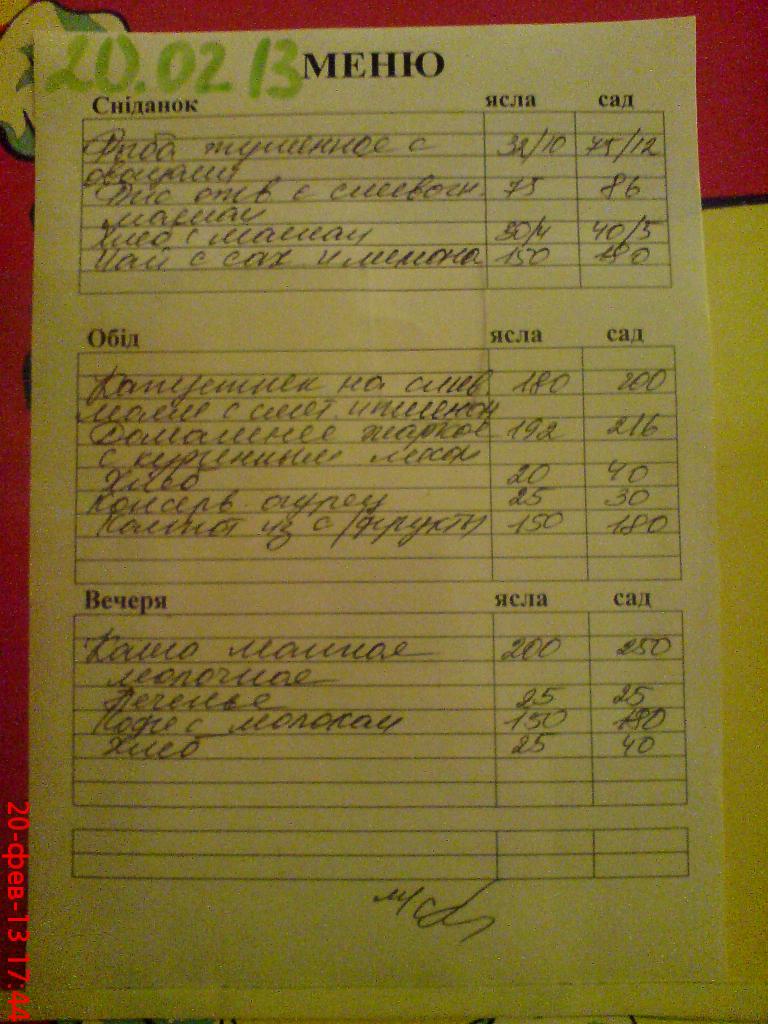 20.02 13 МЕНЮ
Сніданок ясла сад
Рыба тушенное с 32/10 75/12
овощами
Рис отв с сливочн. 75 86
маслом
Хлеб с маслом 30/4 40/5
Чай с сах и лимоно 150 180
Обід ясла сад
Капустняк на слив 180 200
масле с смет. и пшеном
Домашнее жаркое 192 216
с куриным мясом
Хлеб 20 40
Консерв огурец 25 30
Компот из с/фрукты 150 180
Вечеря ясла сад
Каша манная 200 250
молочная
Печенье 25 25
Кофе с молоком 150 180
Хлеб 25 40
м/с
20-фев-13 17:44